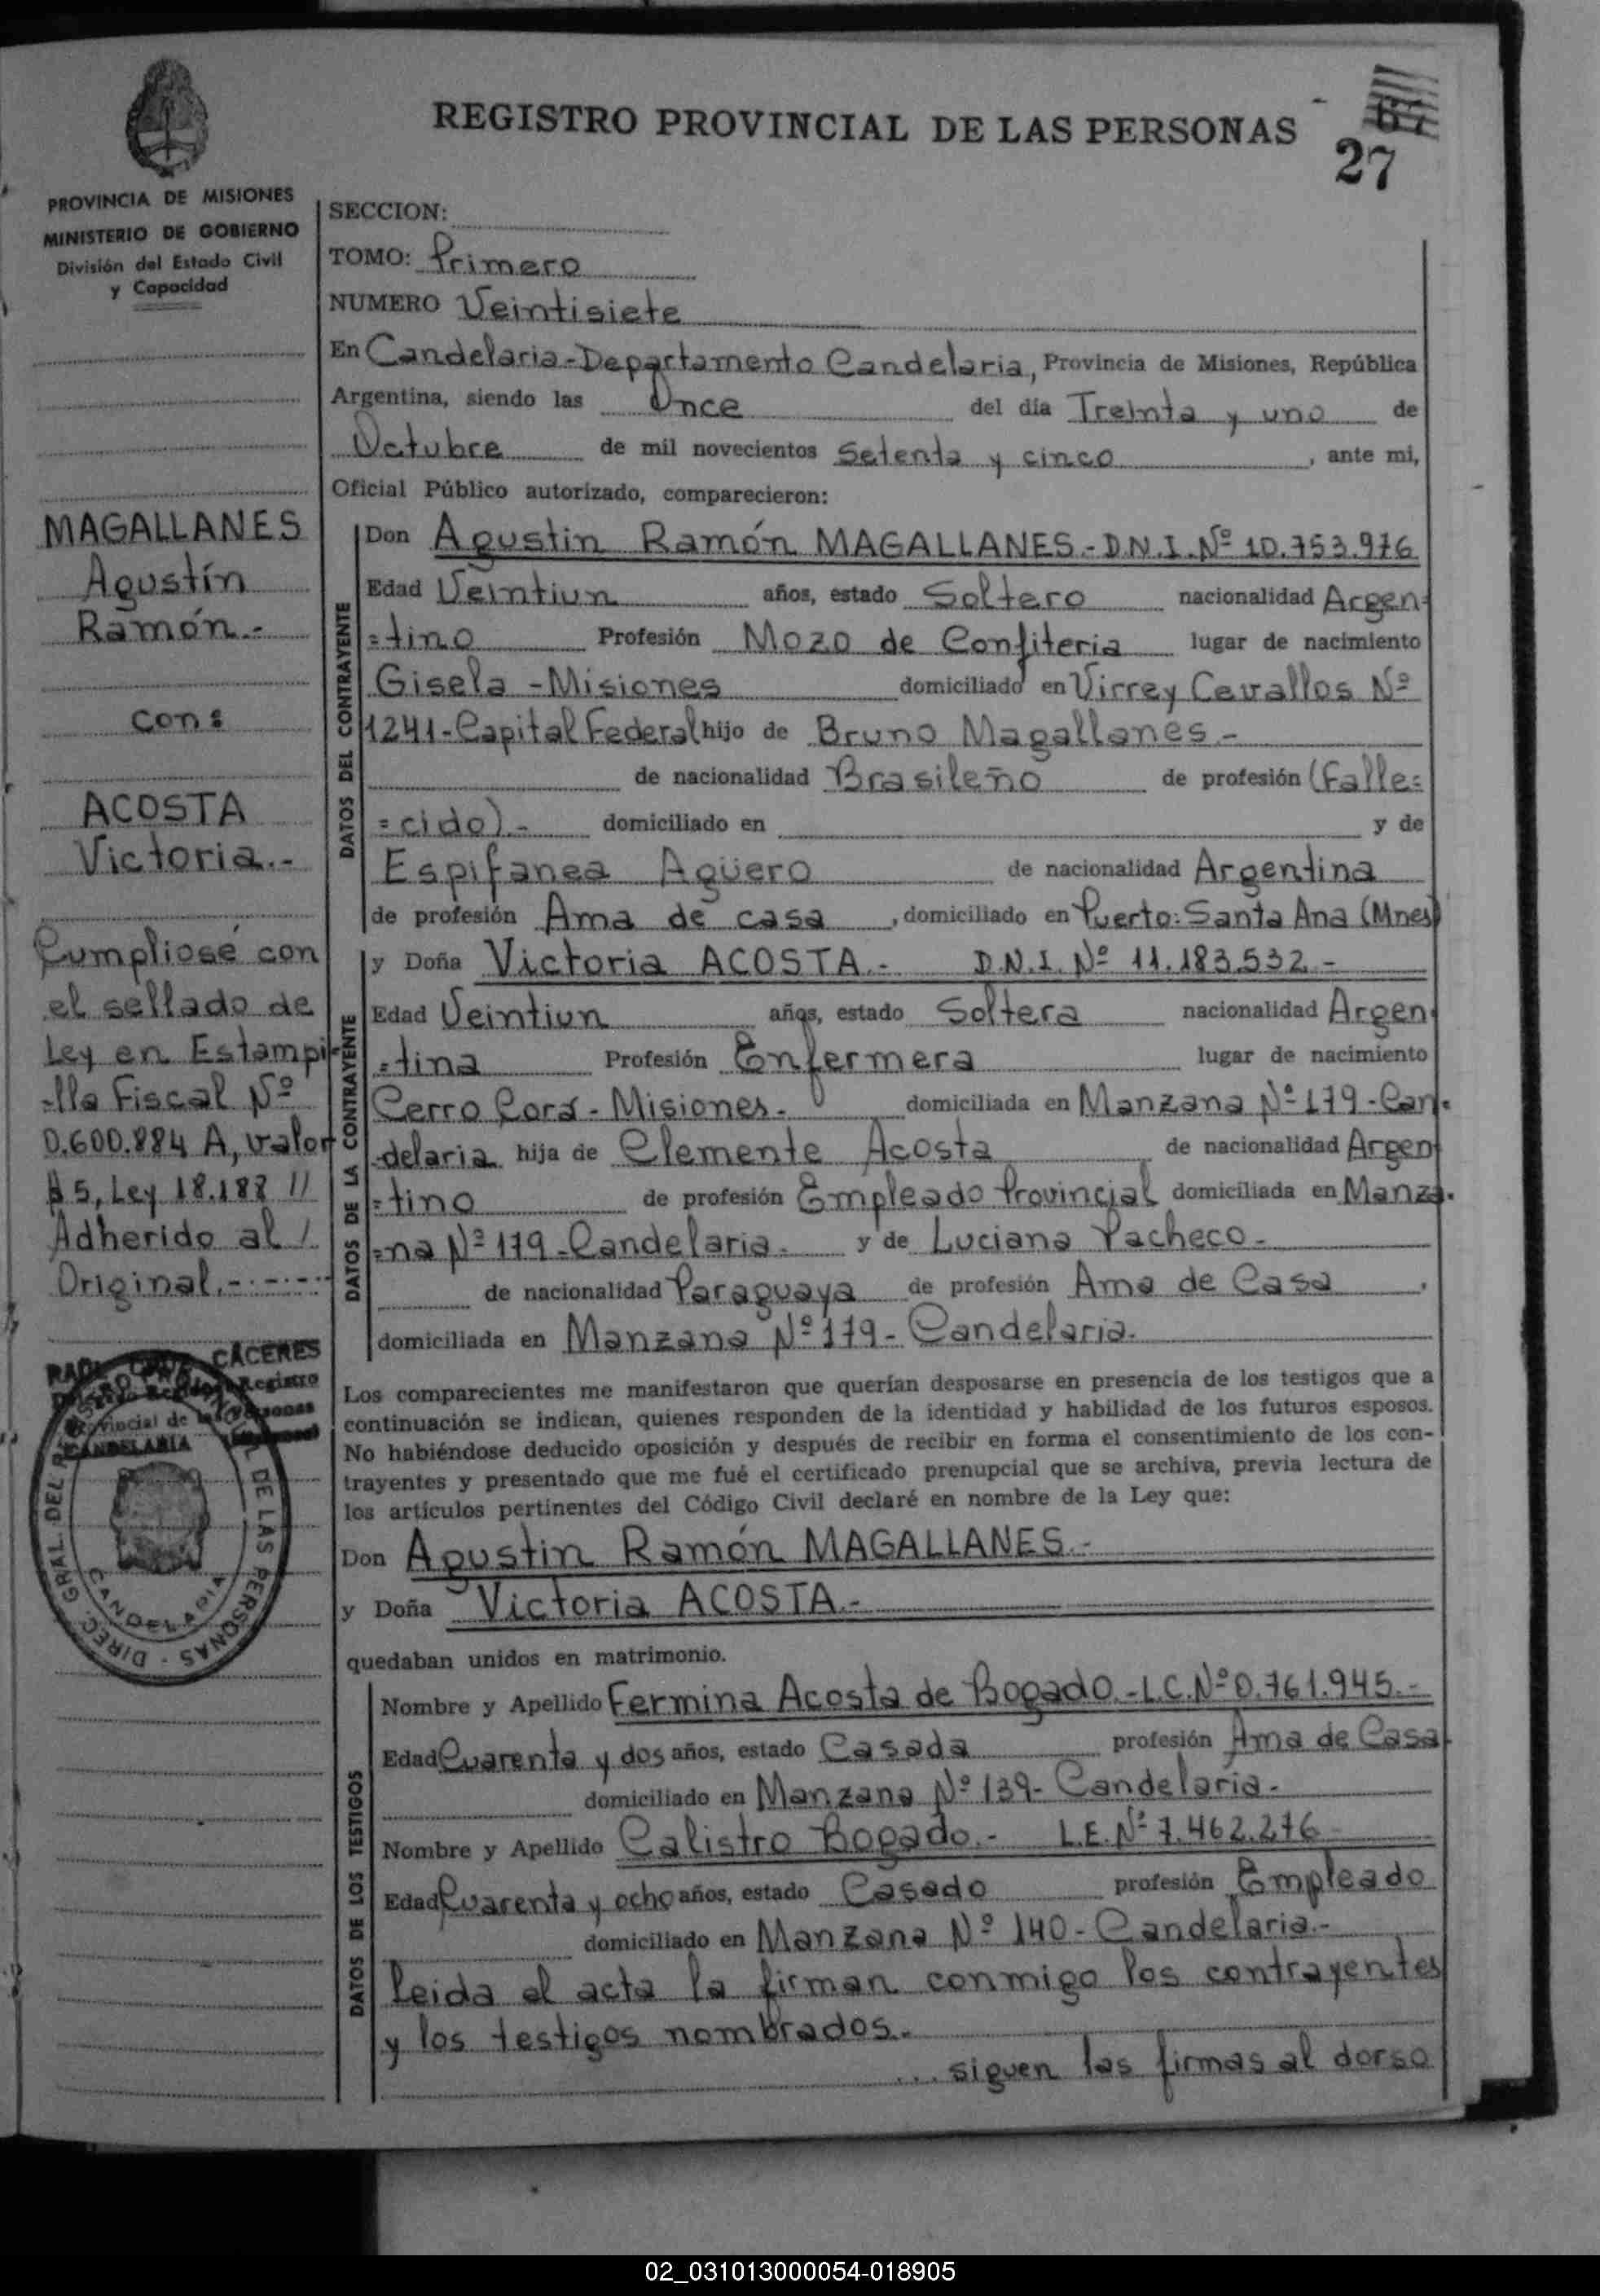 REGISTRO PROVINCIAL DE LAS PERSONAS
27
PROVINCIA DE MISIONES
MINISTERIO DE GOBIERNO
División del Estado Civil
y Capacidad
MAGALLANES
Agustín
Ramón.-
con:
ACOSTA
Victoria.-
Cumpliose con
el sellado de
Ley en Estampi
-lla Fiscal Nº
0.600.884 A, valor
$ 5, Ley 18.188 //
Adherido al /
Original.-.-.-.-
CACERES
Registro
Provincial de las Personas
CANDELARIA
DIREC. GRAL. DEL REGISTRO PROVINCIAL DE LAS PERSONAS
CANDELARIA
SECCION:
TOMO: Primero
NUMERO Veintisiete
En Candelaria-Departamento Candelaria, Provincia de Misiones, República
Argentina, siendo las Once del día Treinta y uno de
Octubre de mil novecientos Setenta y cinco, ante mi,
Oficial Público autorizado, comparecieron:
DATOS DEL CONTRAYENTE
Don Agustin Ramón MAGALLANES.-D.N.I.Nº 10.753.976
Edad Veintiun años, estado Soltero nacionalidad Argen-
=tino Profesión Mozo de Confiteria lugar de nacimiento
Gisela -Misiones domiciliado en Virrey Cevallos Nº
1241-Capital Federal hijo de Bruno Magallanes.-
de nacionalidad Brasileño de profesión (Falle=
=cido).- domiciliado en y de
Espifanea Agüero de nacionalidad Argentina
de profesión Ama de casa, domiciliado en Puerto: Santa Ana (Mnes)
DATOS DE LA CONTRAYENTE
y Doña Victoria ACOSTA.- D.N.I. Nº 11.183.532.-
Edad Veintiun años, estado Soltera nacionalidad Argen-
=tina Profesión Enfermera lugar de nacimiento
Cerro Corá-Misiones.- domiciliada en Manzana Nº 179-Can-
-delaria hija de Clemente Acosta de nacionalidad Argen
=tino de profesión Empleado Provincial domiciliada en Manza-
=na Nº 179-Candelaria.- y de Luciana Pacheco.-
de nacionalidad Paraguaya de profesión Ama de Casa,
domiciliada en Manzana Nº 179-Candelaria.
Los comparecientes me manifestaron que querían desposarse en presencia de los testigos que a
continuación se indican, quienes responden de la identidad y habilidad de los futuros esposos.
No habiéndose deducido oposición y después de recibir en forma el consentimiento de los con-
trayentes y presentado que me fué el certificado prenupcial que se archiva, previa lectura de
los artículos pertinentes del Código Civil declaré en nombre de la Ley que:
Don Agustin Ramón MAGALLANES.-
y Doña Victoria ACOSTA.-
quedaban unidos en matrimonio.
DATOS DE LOS TESTIGOS
Nombre y Apellido Fermina Acosta de Bogado.-L.C.Nº 0.761.945.-
Edad Cuarenta y dos años, estado Casada profesión Ama de Casa
domiciliado en Manzana Nº 139-Candelaria.-
Nombre y Apellido Calistro Bogado.- L.E.Nº 7.462.276
Edad Cuarenta y ocho años, estado Casado profesión Empleado
domiciliado en Manzana Nº 140-Candelaria.-
Leida el acta la firman conmigo los contrayentes
y los testigos nombrados.-
...siguen las firmas al dorso
02_031013000054-018905